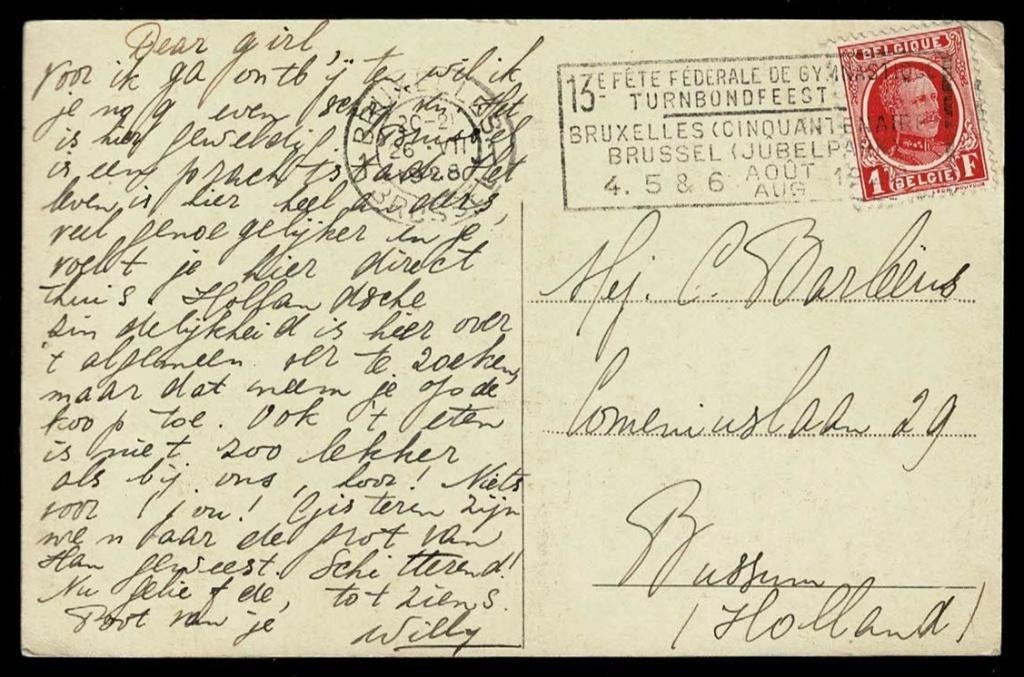 Dear girl,
Voor ik ga ontbijten wil ik
je nog even schrijven. Het
is hier geweldig!
is een prachtstad. Het
leven is hier heel anders,
veel genoegelijker en je
voelt je hier direct
thuis. Hollandsche
zindelijkheid is hier over
't algemeen ver te zoeken,
maar dat neem je op de
koop toe. Ook 't eten
is niet zoo lekker
als bij ons, hoor! Niets
voor jou! Gisteren zijn
we naar de grot van
Han geweest. Schitterend!
Nu geliefde, tot ziens.
Poot van je
Willy
BRUXELLES
20-21
26 VII
1928
BRUSSEL
13E FÊTE FÉDERALE DE GYMNASTIQUE
TURNBONDFEEST
BRUXELLES (CINQUANTENAIRE)
BRUSSEL (JUBELPARK)
4. 5 & 6 AOÛT
AUG.
BELGIQUE
1 BELGIË F
Mej. C. Barbëus
Comeniuslaan 29
Bussum
(Holland)